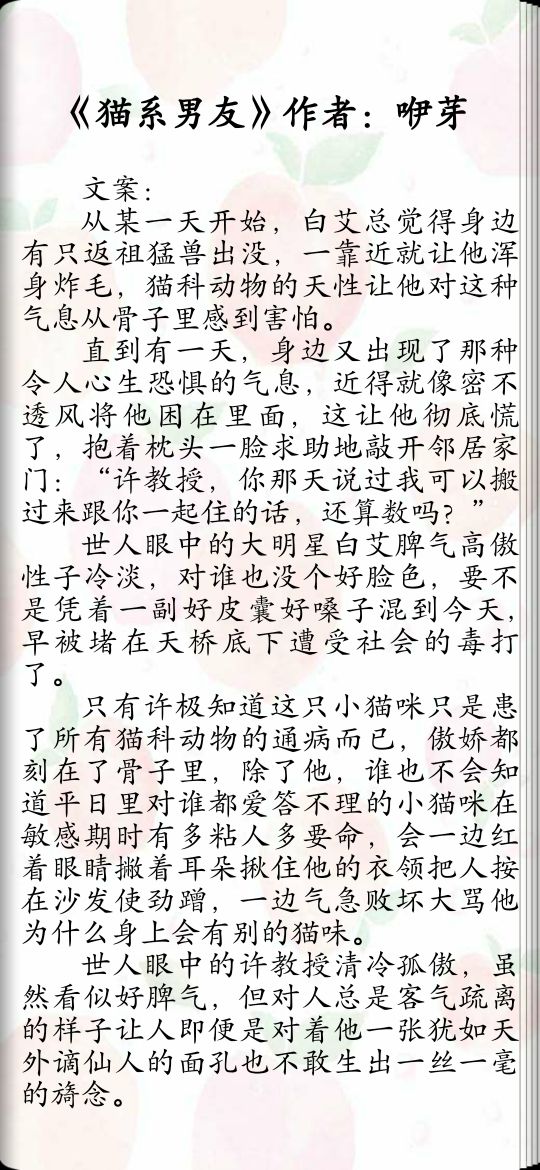 《猫系男友》作者：咿芽
文案：
从某一天开始，白艾总觉得身边
有只返祖猛兽出没，一靠近就让他浑
身炸毛，猫科动物的天性让他对这种
气息从骨子里感到害怕。
直到有一天，身边又出现了那种
令人心生恐惧的气息，近得就像密不
透风将他困在里面，这让他彻底慌
了，抱着枕头一脸求助地敲开邻居家
门：“许教授，你那天说过我可以搬
过来跟你一起住的话，还算数吗？”
世人眼中的大明星白艾脾气高傲
性子冷淡，对谁也没个好脸色，要不
是凭着一副好皮囊好嗓子混到今天，
早被堵在天桥底下遭受社会的毒打
了。
只有许极知道这只小猫咪只是患
了所有猫科动物的通病而已，傲娇都
刻在了骨子里，除了他，谁也不会知
道平日里对谁都爱答不理的小猫咪在
敏感期时有多粘人多要命，会一边红
着眼睛撇着耳朵揪住他的衣领把人按
在沙发使劲蹭，一边气急败坏大骂他
为什么身上会有别的猫味。
世人眼中的许教授清冷孤傲，虽
然看似好脾气，但对人总是客气疏离
的样子让人即便是对着他一张犹如天
外谪仙人的面孔也不敢生出一丝一毫
的旖念。